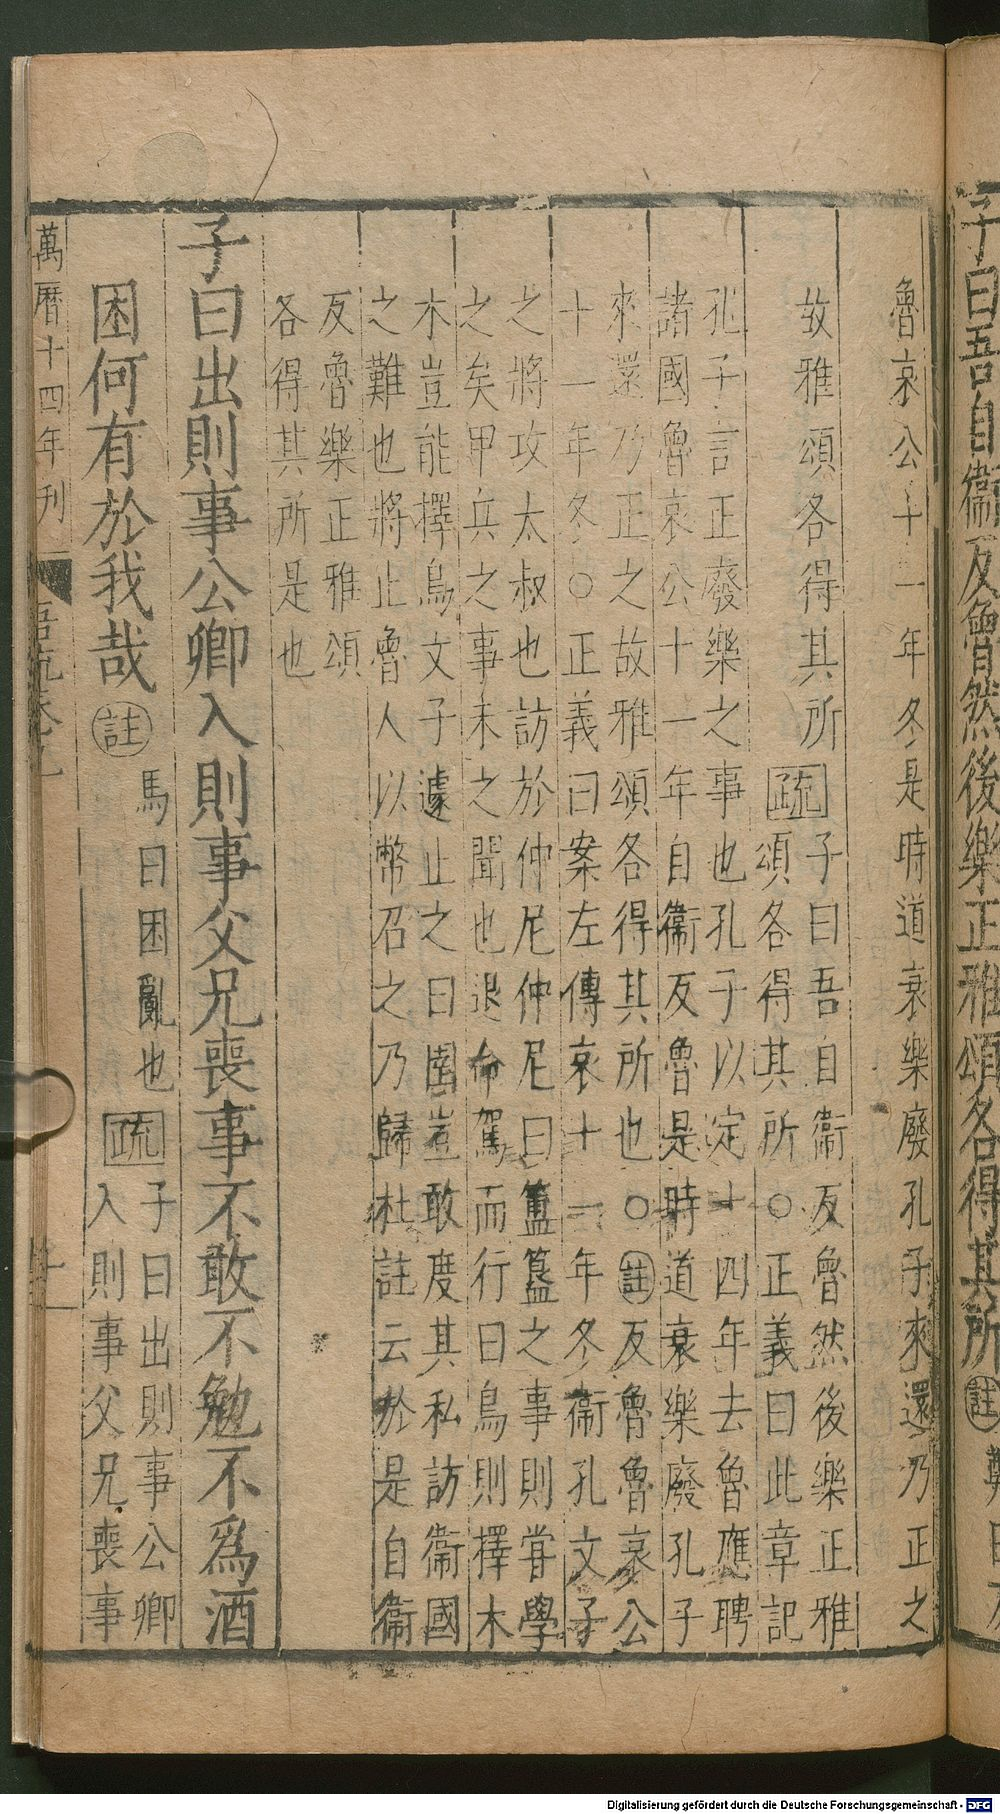 子曰吾自衞反魯然後樂正雅頌各得其所註
魯哀公十一年冬是時道衰樂廢孔子來還乃正之
故雅頌各得其所疏子曰吾自衞反魯然後樂正雅
頌各得其所○正義曰此章記
孔子言正廢樂之事也孔子以定十四年去魯應聘
諸國魯哀公十一年自衞反魯是時道衰樂廢孔子
來還乃正之故雅頌各得其所也○註反魯魯哀公
十一年冬○正義曰案左傳哀十一年冬衞孔文子
之將攻太叔也訪於仲尼仲尼曰簠簋之事則甞學
之矣甲兵之事未之聞也退命駕而行曰鳥則擇木
木豈能擇鳥文子遽止之曰圉豈敢度其私訪衞國
之難也將止魯人以幣召之乃歸杜註云於是自衞
反魯樂正雅頌
各得其所是也
子曰出則事公卿入則事父兄喪事不敢不勉不爲酒
困何有於我哉註馬曰困亂也疏子曰出則事公卿
入則事父兄喪事
萬暦十四年刊
Digitalisierung gefördert durch die Deutsche Forschungsgemeinschaft - DFG